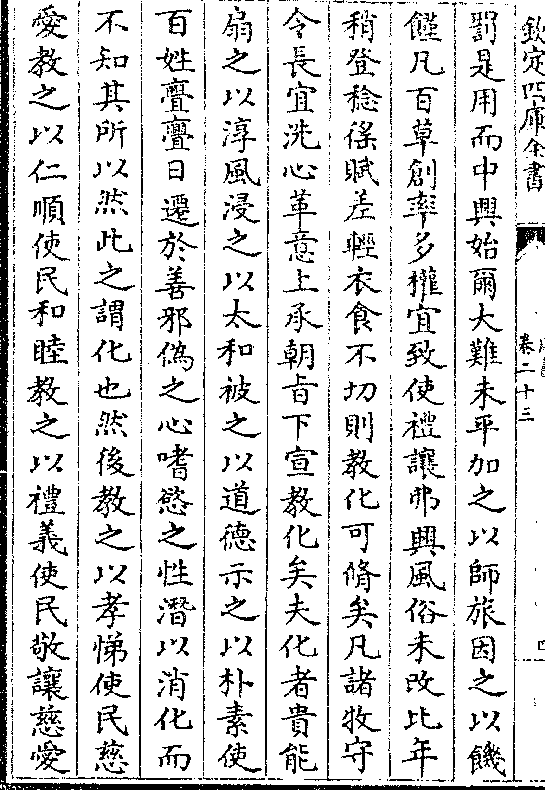 欽定四庫全書
卷二十三
罰是用而中興始爾大難未平加之以師旅因之以饑
饉凡百草創率多權宜致使禮讓弗興風俗未改比年
稍登稔徭賦差輕衣食不切則教化可脩矣凡諸牧守
令長宜洗心革意上承朝旨下宣教化矣夫化者貴能
扇之以淳風浸之以太和被之以道德示之以朴素使
百姓亹亹日遷於善邪偽之心嗜慾之性潛以消化而
不知其所以然此之謂化也然後教之以孝悌使民慈
愛教之以仁順使民和睦教之以禮義使民敬讓慈愛